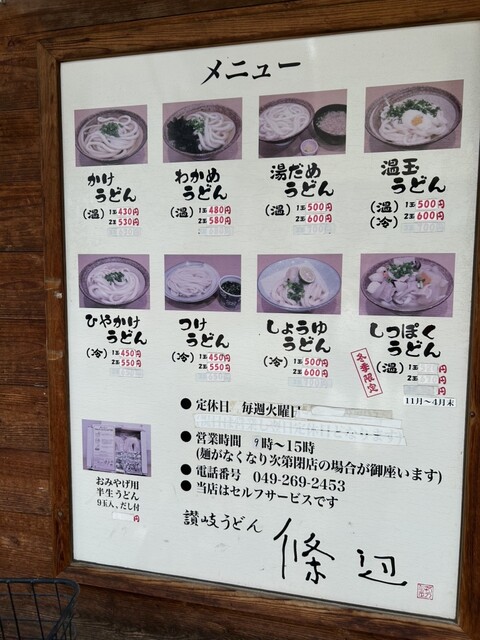 メニュー
かけ
うどん
(温) 1玉 430円
2玉 530円
わかめ
うどん
(温) 1玉 480円
2玉 580円
湯だめ
うどん
(温) 1玉 500円
2玉 600円
温玉
うどん
(温) 1玉 500円
(冷) 2玉 600円
ひやかけ
うどん
(冷) 1玉 450円
2玉 550円
つけ
うどん
(冷) 1玉 450円
2玉 550円
しょうゆ
うどん
(冷) 1玉 500円
2玉 600円
しっぽく
うどん
(温) 1玉 円
2玉 円
円
冬季限定
11月〜4月末
● 定休日 毎週火曜日
● 営業時間 9時〜15時
(麺がなくなり次第閉店の場合が御座います)
● 電話番号 049-269-2453
● 当店はセルフサービスです
おみやげ用
半生うどん
9玉入、だし付
円
讃岐うどん
條辺